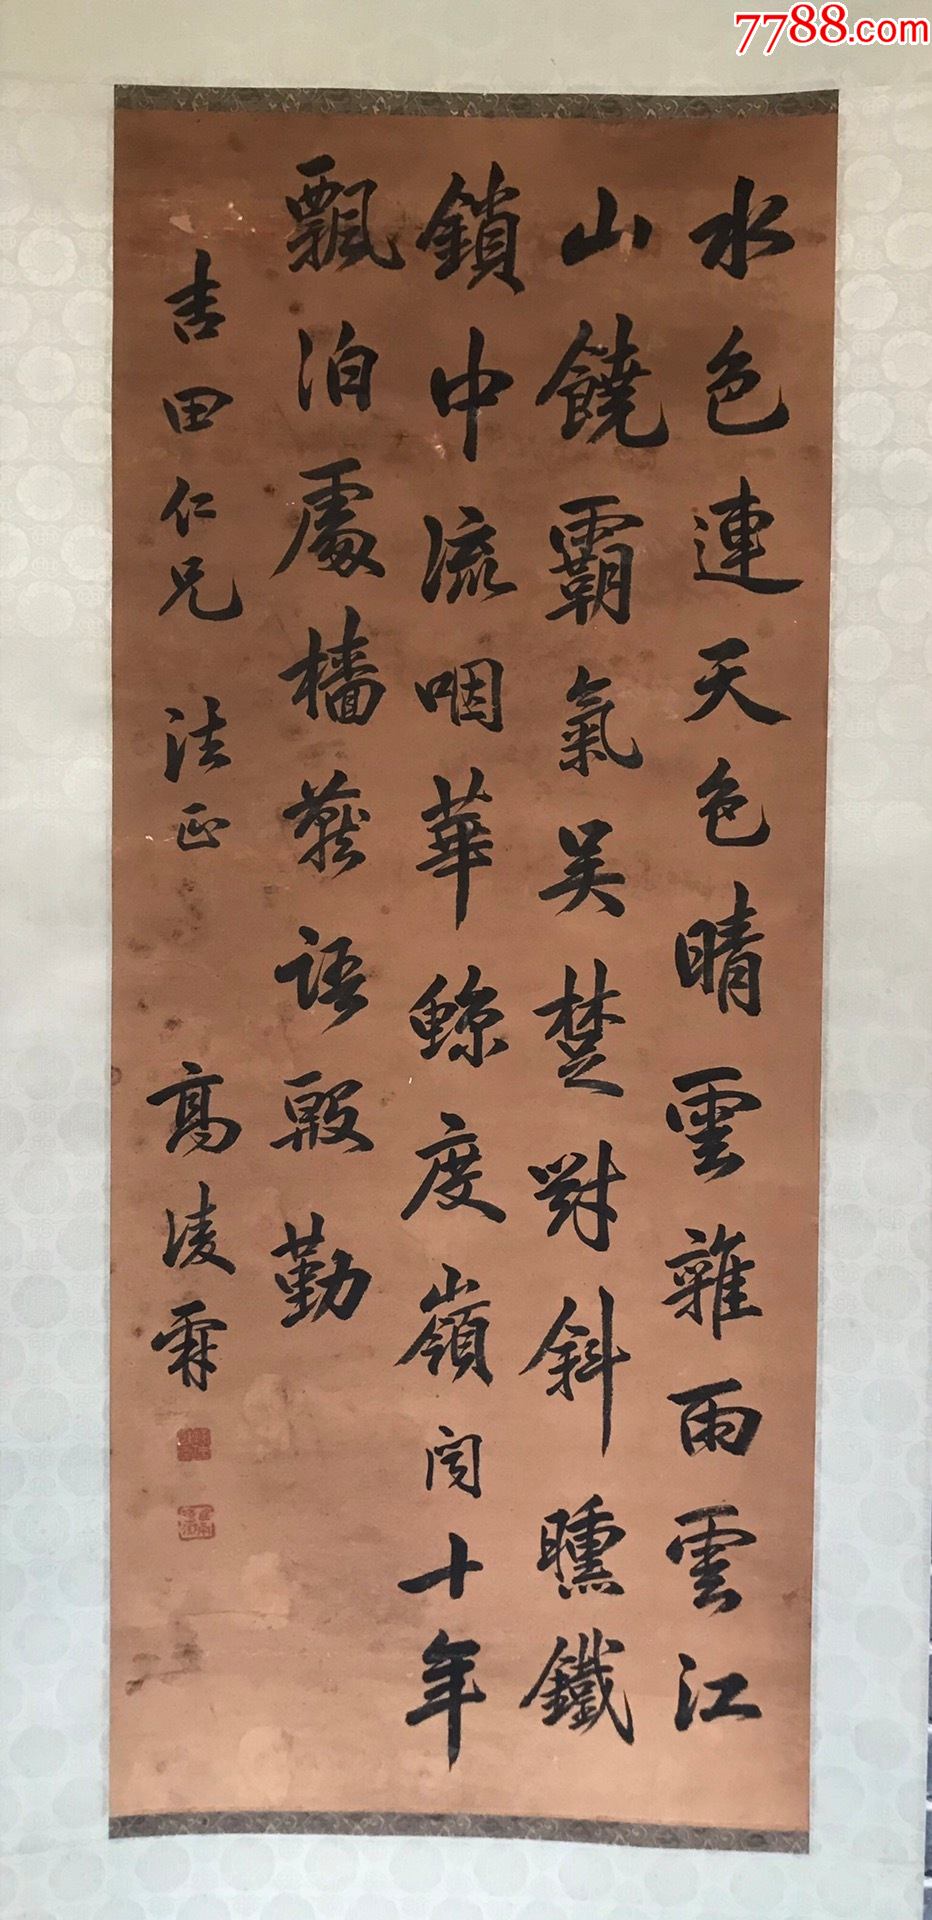 7788.com
水色連天色晴雲雜雨雲江
山饒霸氣吴楚對斜曛鐵
鎖中流咽華鯨度嶺聞十年
飄泊處檣燕語殷勤
吉田仁兄 法正 高淩霨